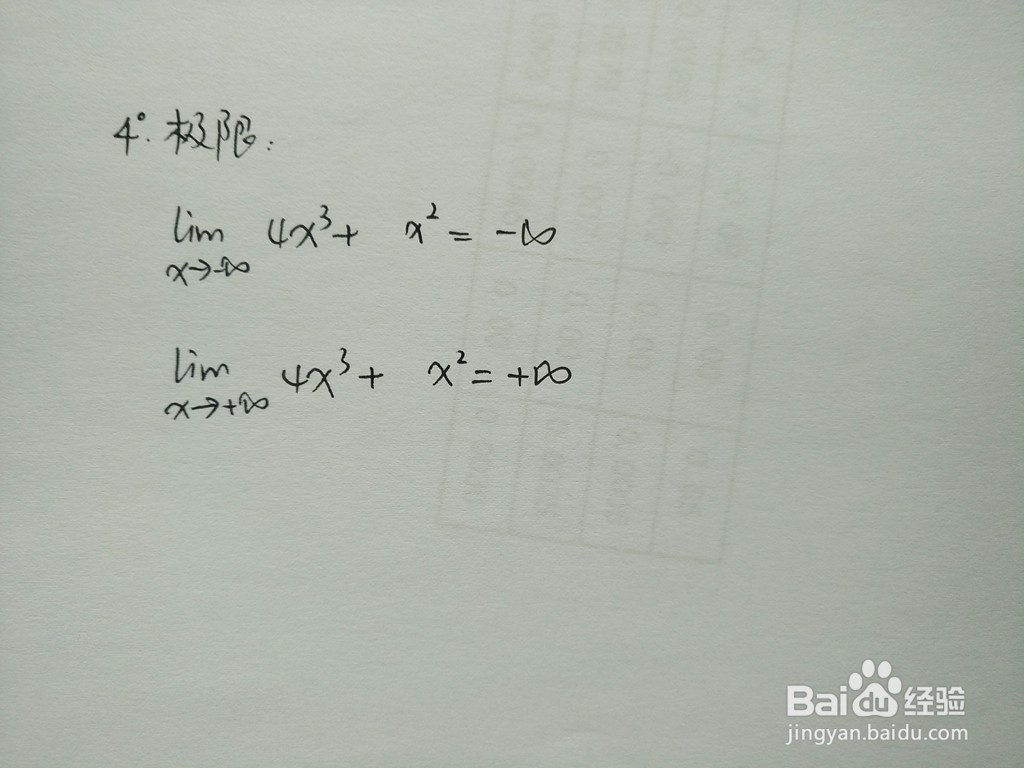 4°. 极限:
lim 4x³+ x² = -∞
x→-∞
lim 4x³+ x² = +∞
x→+∞
Baidu 经验
jingyan.baidu.com